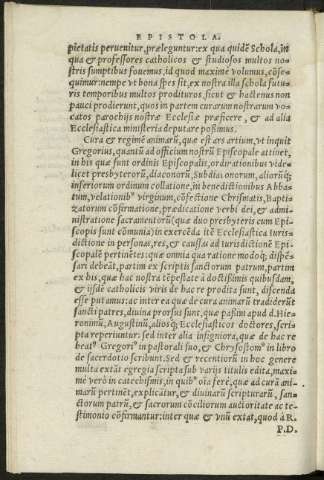 EPISTOLA.
pietatis peruenitur, præleguntur: ex qua quidẽ Schola, in
qua & professores catholicos & studiosos multos no-
stris sumptibus fouemus, id quod maximè volumus, cõse-
quimur: nempe vt bona spes sit, ex nostra illa schola futu-
ris temporibus multos prodituros, sicut & hactenus non
pauci prodierunt, quos in partem curarum nostrarum vo-
catos parochijs nostræ Ecclesiæ præficere, & ad alia
Ecclesiastica ministeria deputare possimus.
Cura & regimẽ animarũ, quæ est ars artium, vt inquit
Gregorius, quantũ ad officium nostrũ Episcopale attinet,
in his quæ sunt ordinis Episcopalis, ordinationibus vide-
licet presbyterorũ, diaconorũ, Subdiaconorum, aliorũq́;
inferiorum ordinum collatione, in benedictionibus Abba-
tum, velationib⁹ virginum, cõfectione Chrismatis, Bapti-
zatorum cõfirmatione, prædicatione verbi dei, & admi-
nistratione sacramentorũ (quæ duo presbyteris cum Epi-
scopis sunt cõmunia) in exercẽda itẽ Ecclesiastica iuris-
dictione in personas, res, & caussas ad iurisdictionẽ Epi-
scopalẽ pertinẽtes: quæ omnia qua ratione modoq́; dispẽ-
sari debeãt, partim ex scriptis sanctorum patrum, partim
ex his, quæ hac nostra tẽpestate à doctissimis quibusdam,
& ijsdẽ catholicis viris de hac re prodita sunt, discenda
esse putamus: ac inter ea quæ de cura animarũ tradiderũt
sancti patres, diuina prorsus sunt, quæ passim apud D. Hie-
ronimũ, Augustinũ, aliosq́; Ecclesiasticos doctores, scri-
pta reperiuntur: sed inter alia insigniora, quæ de hac re
beat⁹ Gregori⁹ in pastorali suo, & Chrysostom⁹ in libro
de sacerdotio scribunt. Sed & recentiorũ in hoc genere
multa extãt egregia scripta sub varijs titulis edita, maxi-
mè verò in catechismis, in quib⁹ oĩa ferè, quæ ad curã ani-
marũ pertinẽt, explicãtur, & diuinarũ scripturarũ, san-
ctorum patrũ, & sacrorum cõciliorum auctoritate ac te-
stimonio cõfirmantur: inter quæ & vnũ extat, quod à R.
P.D.